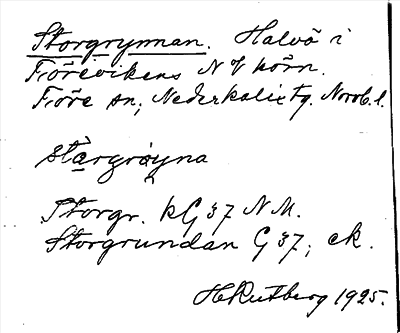 Storgrynnan. Halvö i
Törevikens NV hörn.
Töre sn; Nederkalix tg. Norrb. l.
stårgrøyna
Storgr. kG 37 NM.
Storgrundan G 37; ek.
H Rutberg 1925.